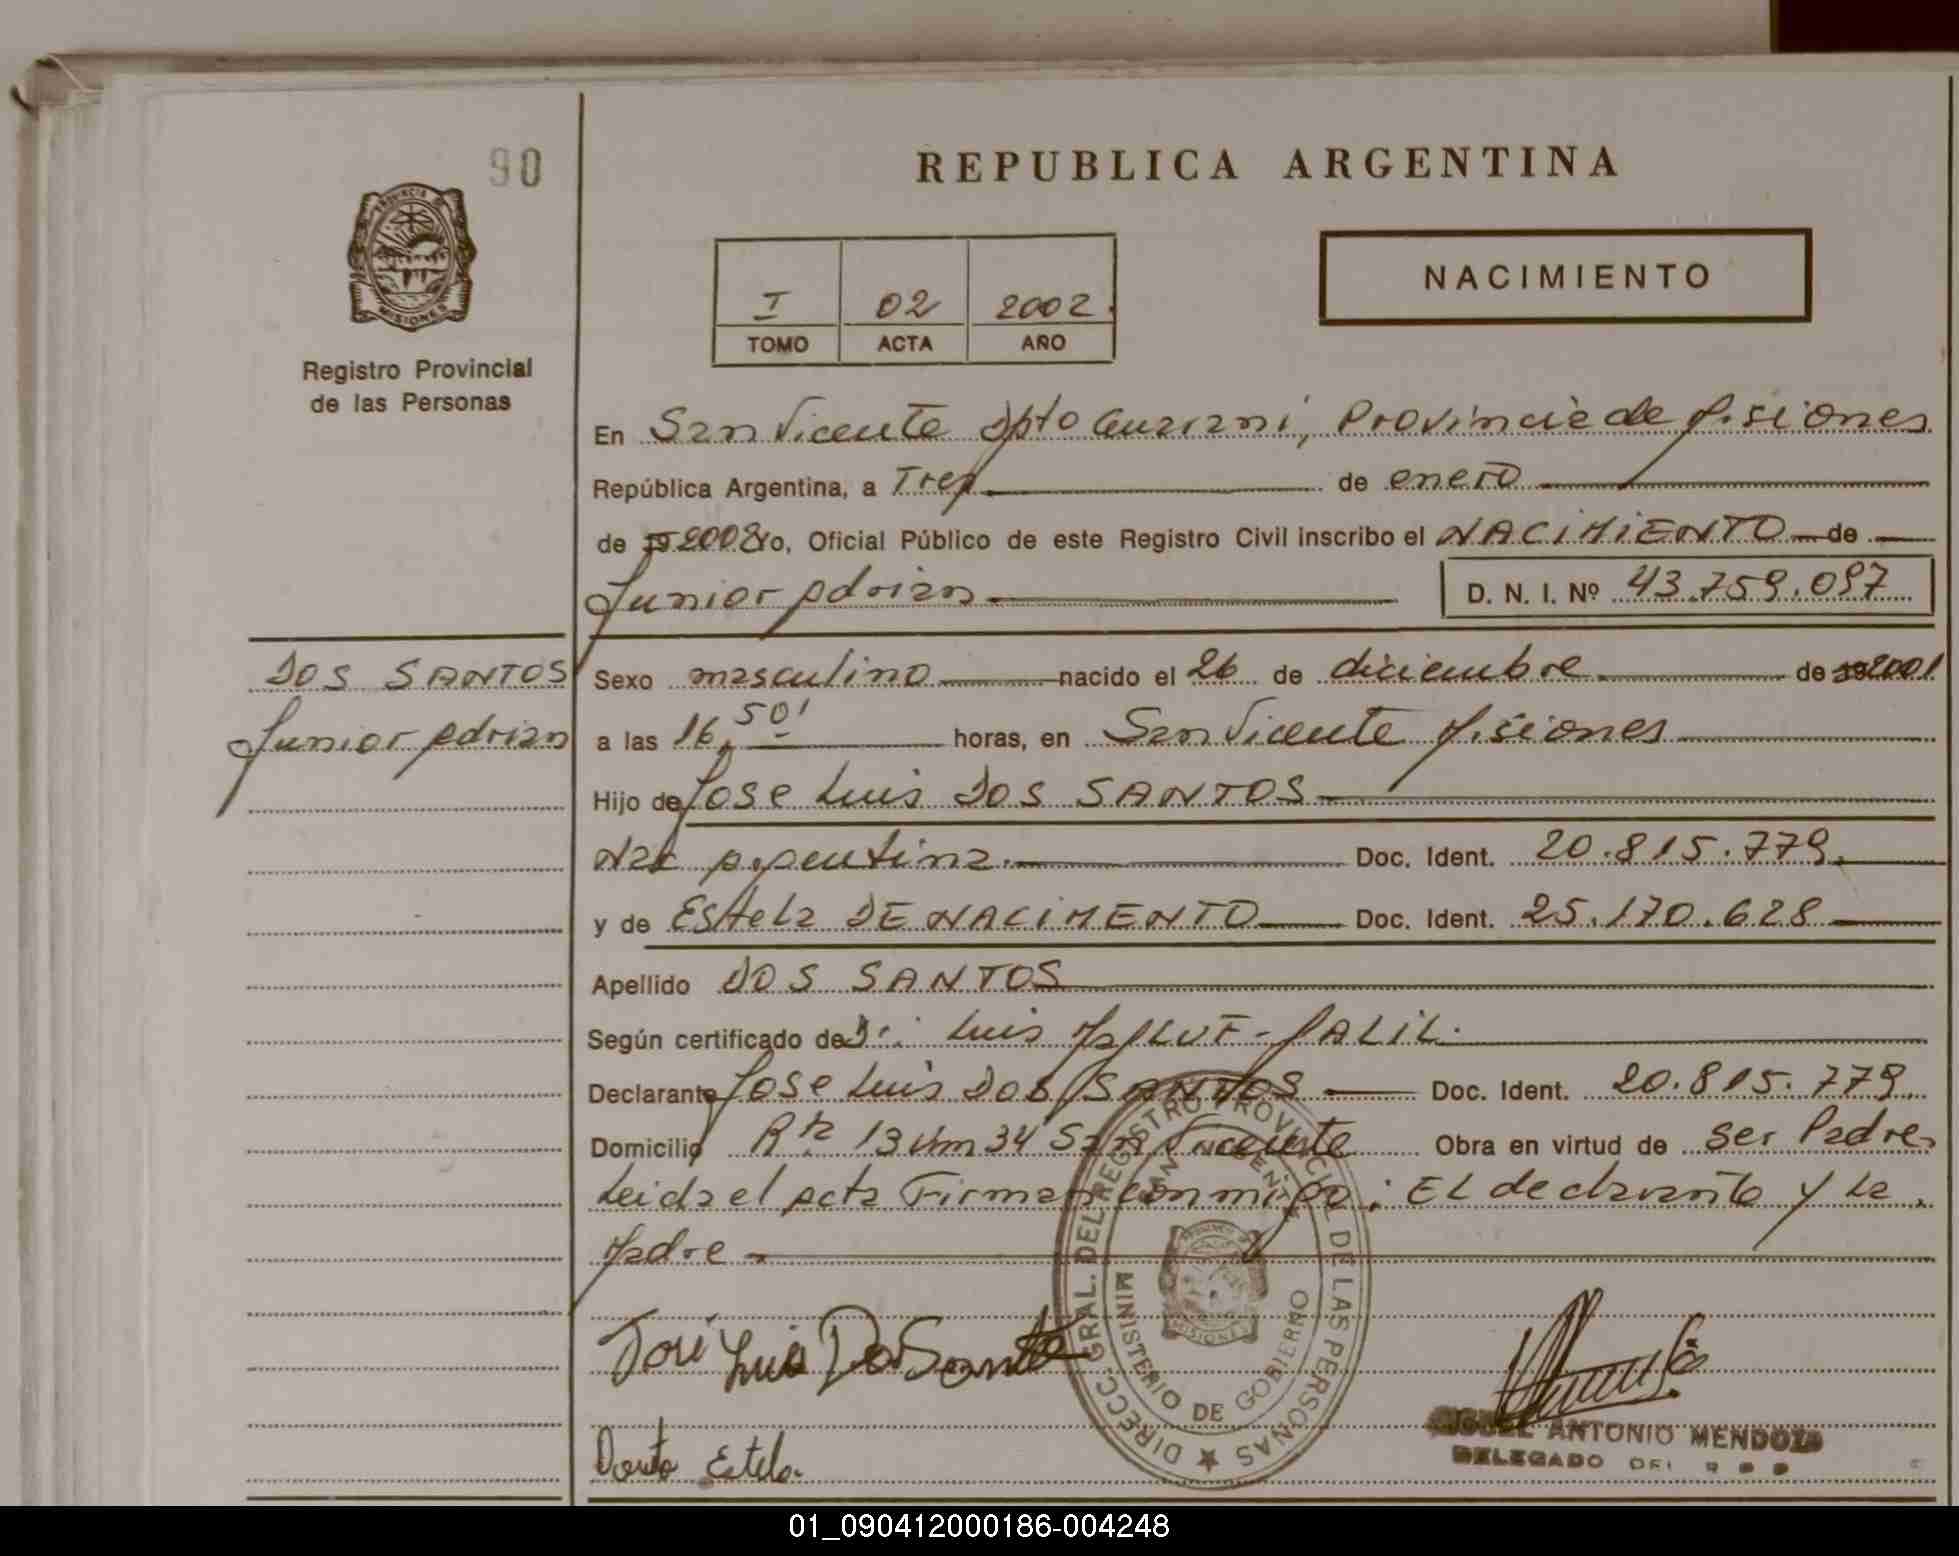 90
REPUBLICA ARGENTINA
PROVINCIA DE
MISIONES
NACIMIENTO
I 02 2002.
TOMO ACTA AÑO
Registro Provincial
de las Personas
En San Vicente Dpto Guarani, Provincia de Misiones
República Argentina, a Tres de enero
de 19 2002 Yo, Oficial Público de este Registro Civil inscribo el NACIMIENTO de
Junior Adrian D. N. I. Nº 43.759.097
DOS SANTOS
Junior Adrian
Sexo masculino nacido el 26 de diciembre de 19 2001
a las 16,50' horas, en San Vicente Misiones
Hijo de Jose Luis DOS SANTOS
Nac Argentina. Doc. Ident. 20.815.779.
y de Estela DE NACIMENTO Doc. Ident. 25.170.628
Apellido DOS SANTOS
Según certificado de Dr. Luis JALIL.
Declarante Jose Luis DOS SANTOS Doc. Ident. 20.815.779.
Domicilio Rta 13 Km 34 San Vicente Obra en virtud de ser Padre.
Leida el acta Firman conmigo: EL declarante y La
Madre
José Luis Do Santo
Estela
DIRECC. GRAL. DEL REGISTRO PROVINCIAL DE LAS PERSONAS
SAN VICENTE
MINISTERIO DE GOBIERNO
MISIONES
MIGUEL ANTONIO MENDOZA
DELEGADO DEL
01_090412000186-004248